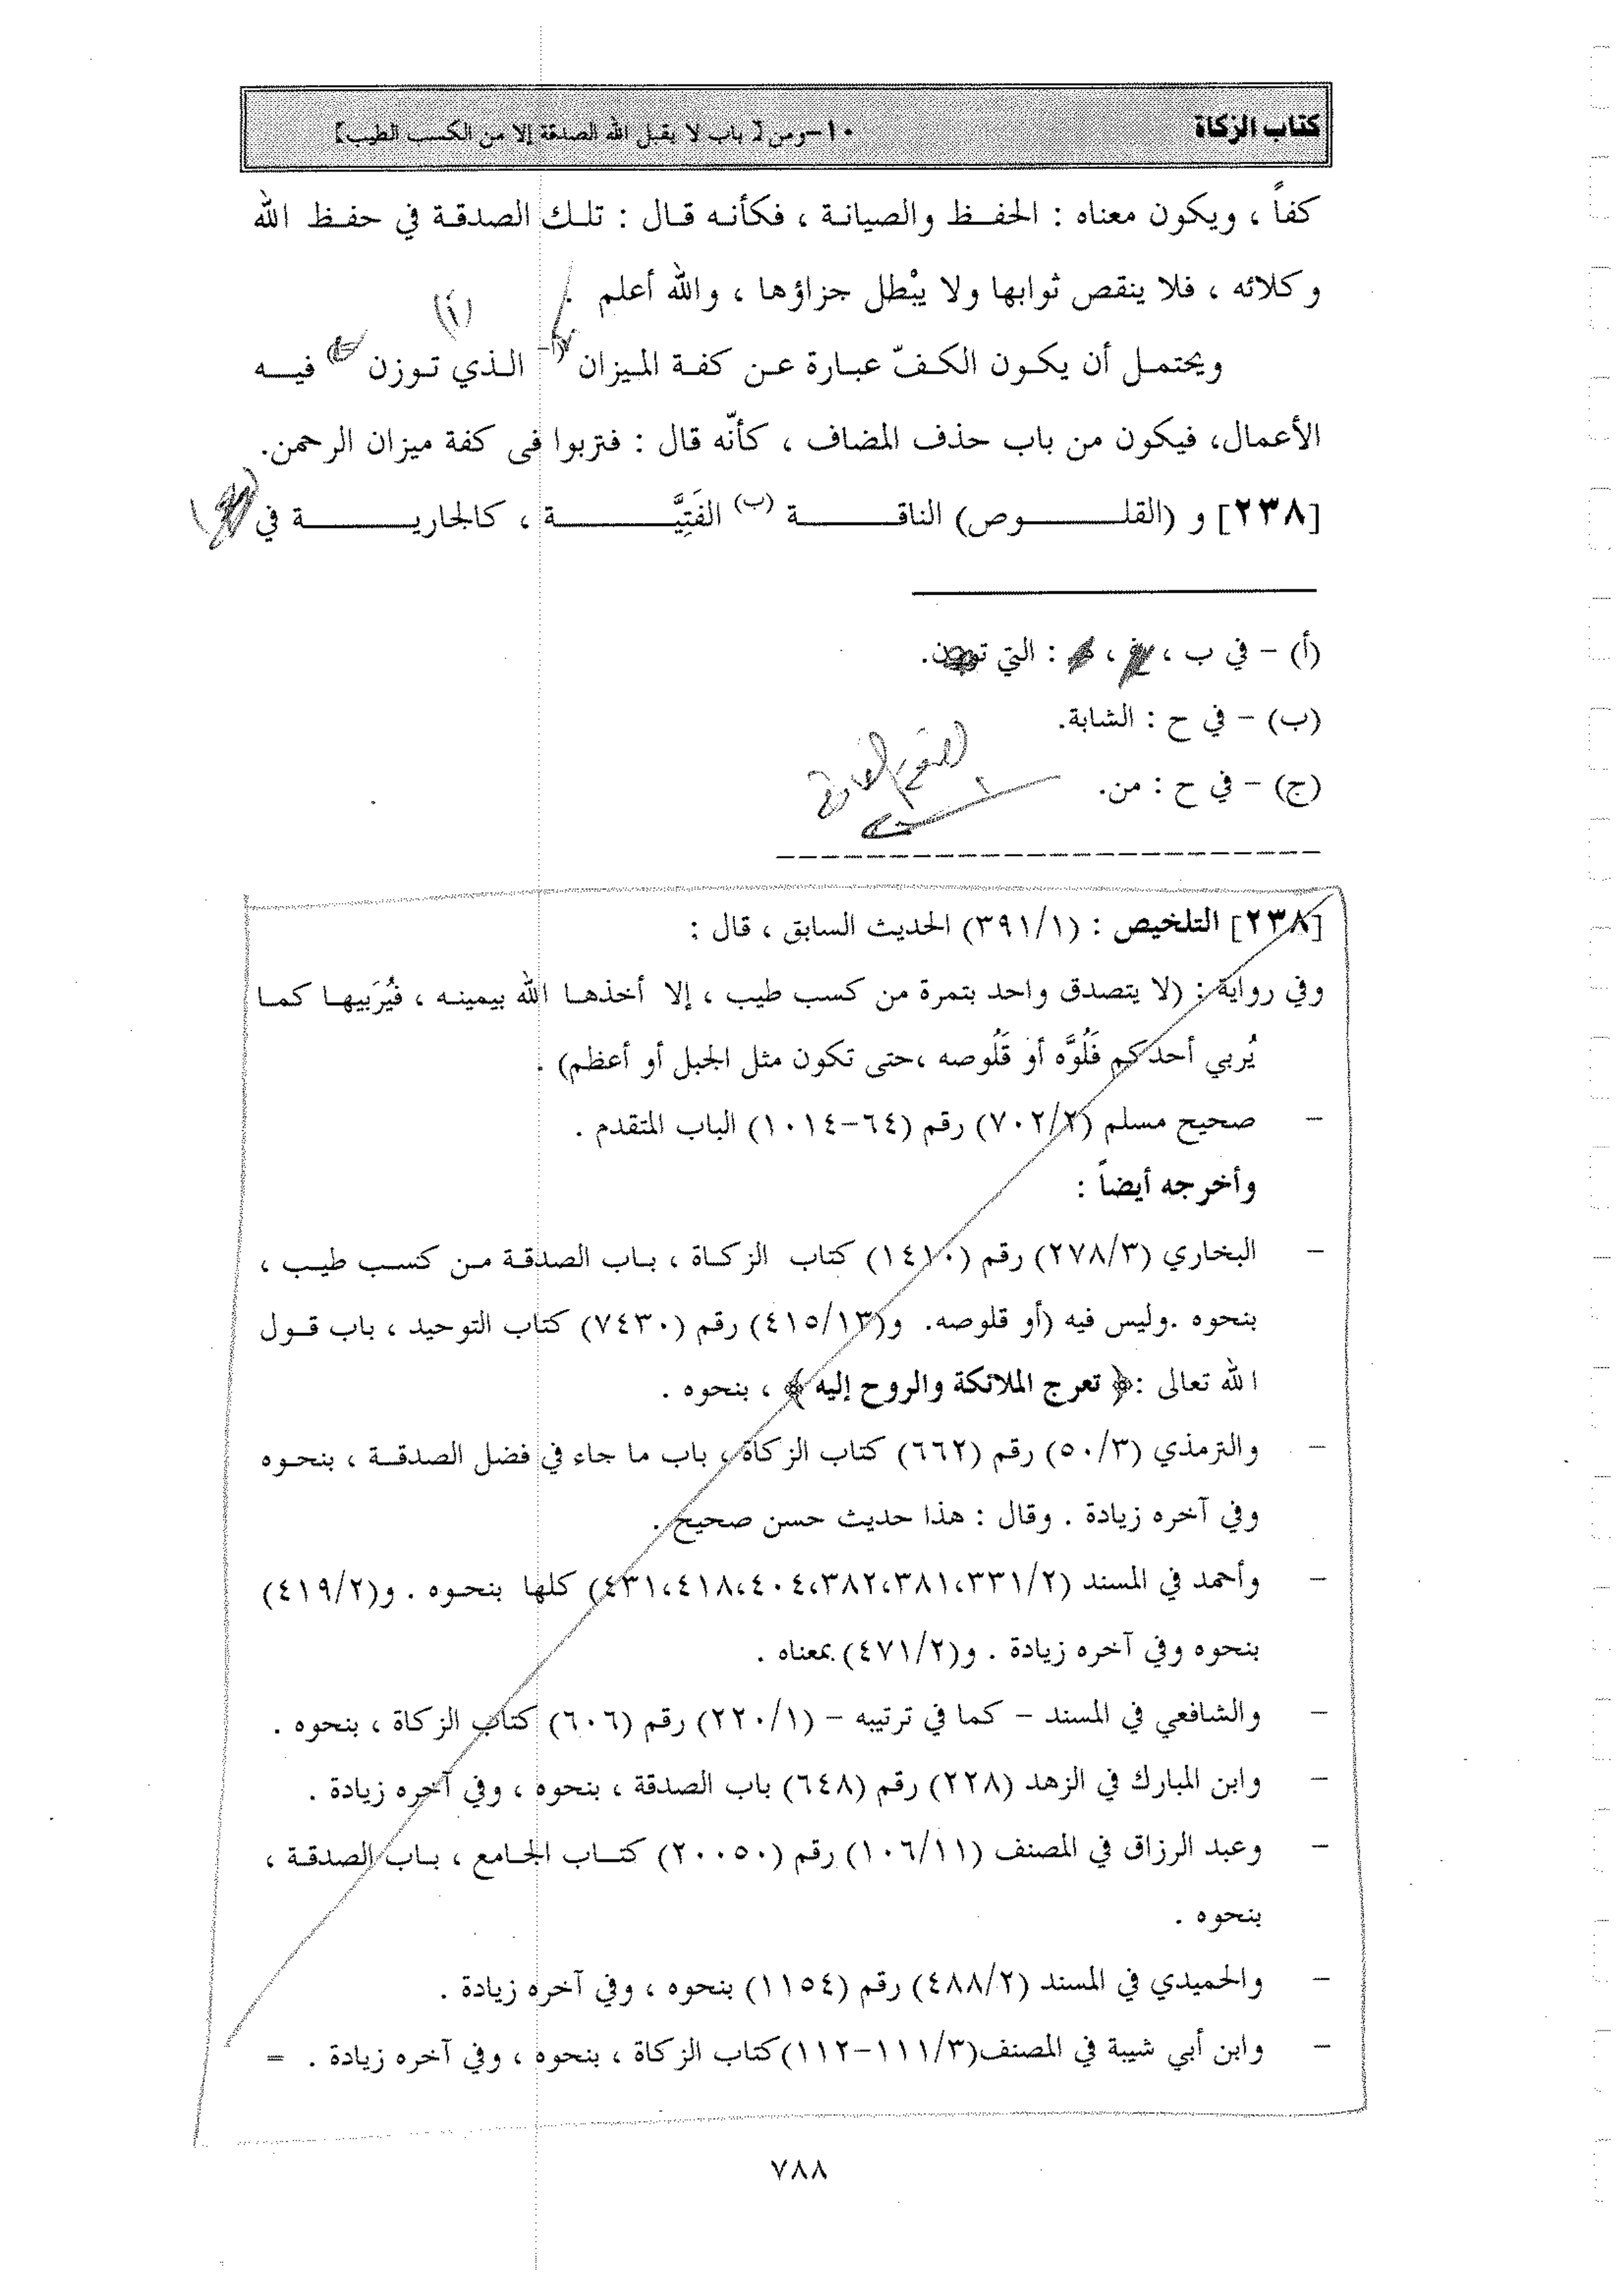 كتاب الزكاة
١٠-ومن [ باب لا يقبل الله الصدقة إلا من الكسب الطيب]
كفاً ، ويكون معناه : الحفظ والصيانة ، فكأنه قال : تلك الصدقة في حفظ الله
وكلائه ، فلا ينقص ثوابها ولا يبْطل جزاؤها ، والله أعلم .
(أ)
ويحتمل أن يكون الكفّ عبارة عن كفة الميزان الذي توزن فيه
الأعمال، فيكون من باب حذف المضاف ، كأنّه قال : فتربوا فى كفة ميزان الرحمن.
[٢٣٨] و (القلوص) الناقة (ب) الفَتِيَّة ، كالجارية في
(أ) - في ب ، : التي
(ب) - في ح : الشابة.
(ج) - في ح : من.
[٢٣٨] التلخيص : (٣٩١/١) الحديث السابق ، قال :
وفي رواية : (لا يتصدق واحد بتمرة من كسب طيب ، إلا أخذها الله بيمينه ، فيُرَبيها كما
يُربي أحدكم فَلُوَّه أو قَلُوصه ،حتى تكون مثل الجبل أو أعظم) .
- صحيح مسلم (٧٠٢/٢) رقم (٦٤-١٠١٤) الباب المتقدم .
وأخرجه أيضاً :
- البخاري (٢٧٨/٣) رقم (١٤١٠) كتاب الزكاة ، باب الصدقة من كسب طيب ،
بنحوه .وليس فيه (أو قلوصه. و(٤١٥/١٣) رقم (٧٤٣٠) كتاب التوحيد ، باب قول
الله تعالى :﴿ تعرج الملائكة والروح إليه ﴾ ، بنحوه .
- والترمذي (٥٠/٣) رقم (٦٦٢) كتاب الزكاة ، باب ما جاء في فضل الصدقة ، بنحوه
وفي آخره زيادة . وقال : هذا حديث حسن صحيح .
- وأحمد في المسند (٣٣١/٢،٣٨١،٣٨٢،٤٠٤،٤١٨،٤٣١) كلها بنحوه . و(٤١٩/٢)
بنحوه وفي آخره زيادة . و(٤٧١/٢) بمعناه .
- والشافعي في المسند - كما في ترتيبه - (٢٢٠/١) رقم (٦٠٦) كتاب الزكاة ، بنحوه .
- وابن المبارك في الزهد (٢٢٨) رقم (٦٤٨) باب الصدقة ، بنحوه ، وفي آخره زيادة .
- وعبد الرزاق في المصنف (١٠٦/١١) رقم (٢٠٠٥٠) كتاب الجامع ، باب الصدقة ،
بنحوه .
- والحميدي في المسند (٤٨٨/٢) رقم (١١٥٤) بنحوه ، وفي آخره زيادة .
- وابن أبي شيبة في المصنف(١١١/٣-١١٢)كتاب الزكاة ، بنحوه ، وفي آخره زيادة . =
٧٨٨